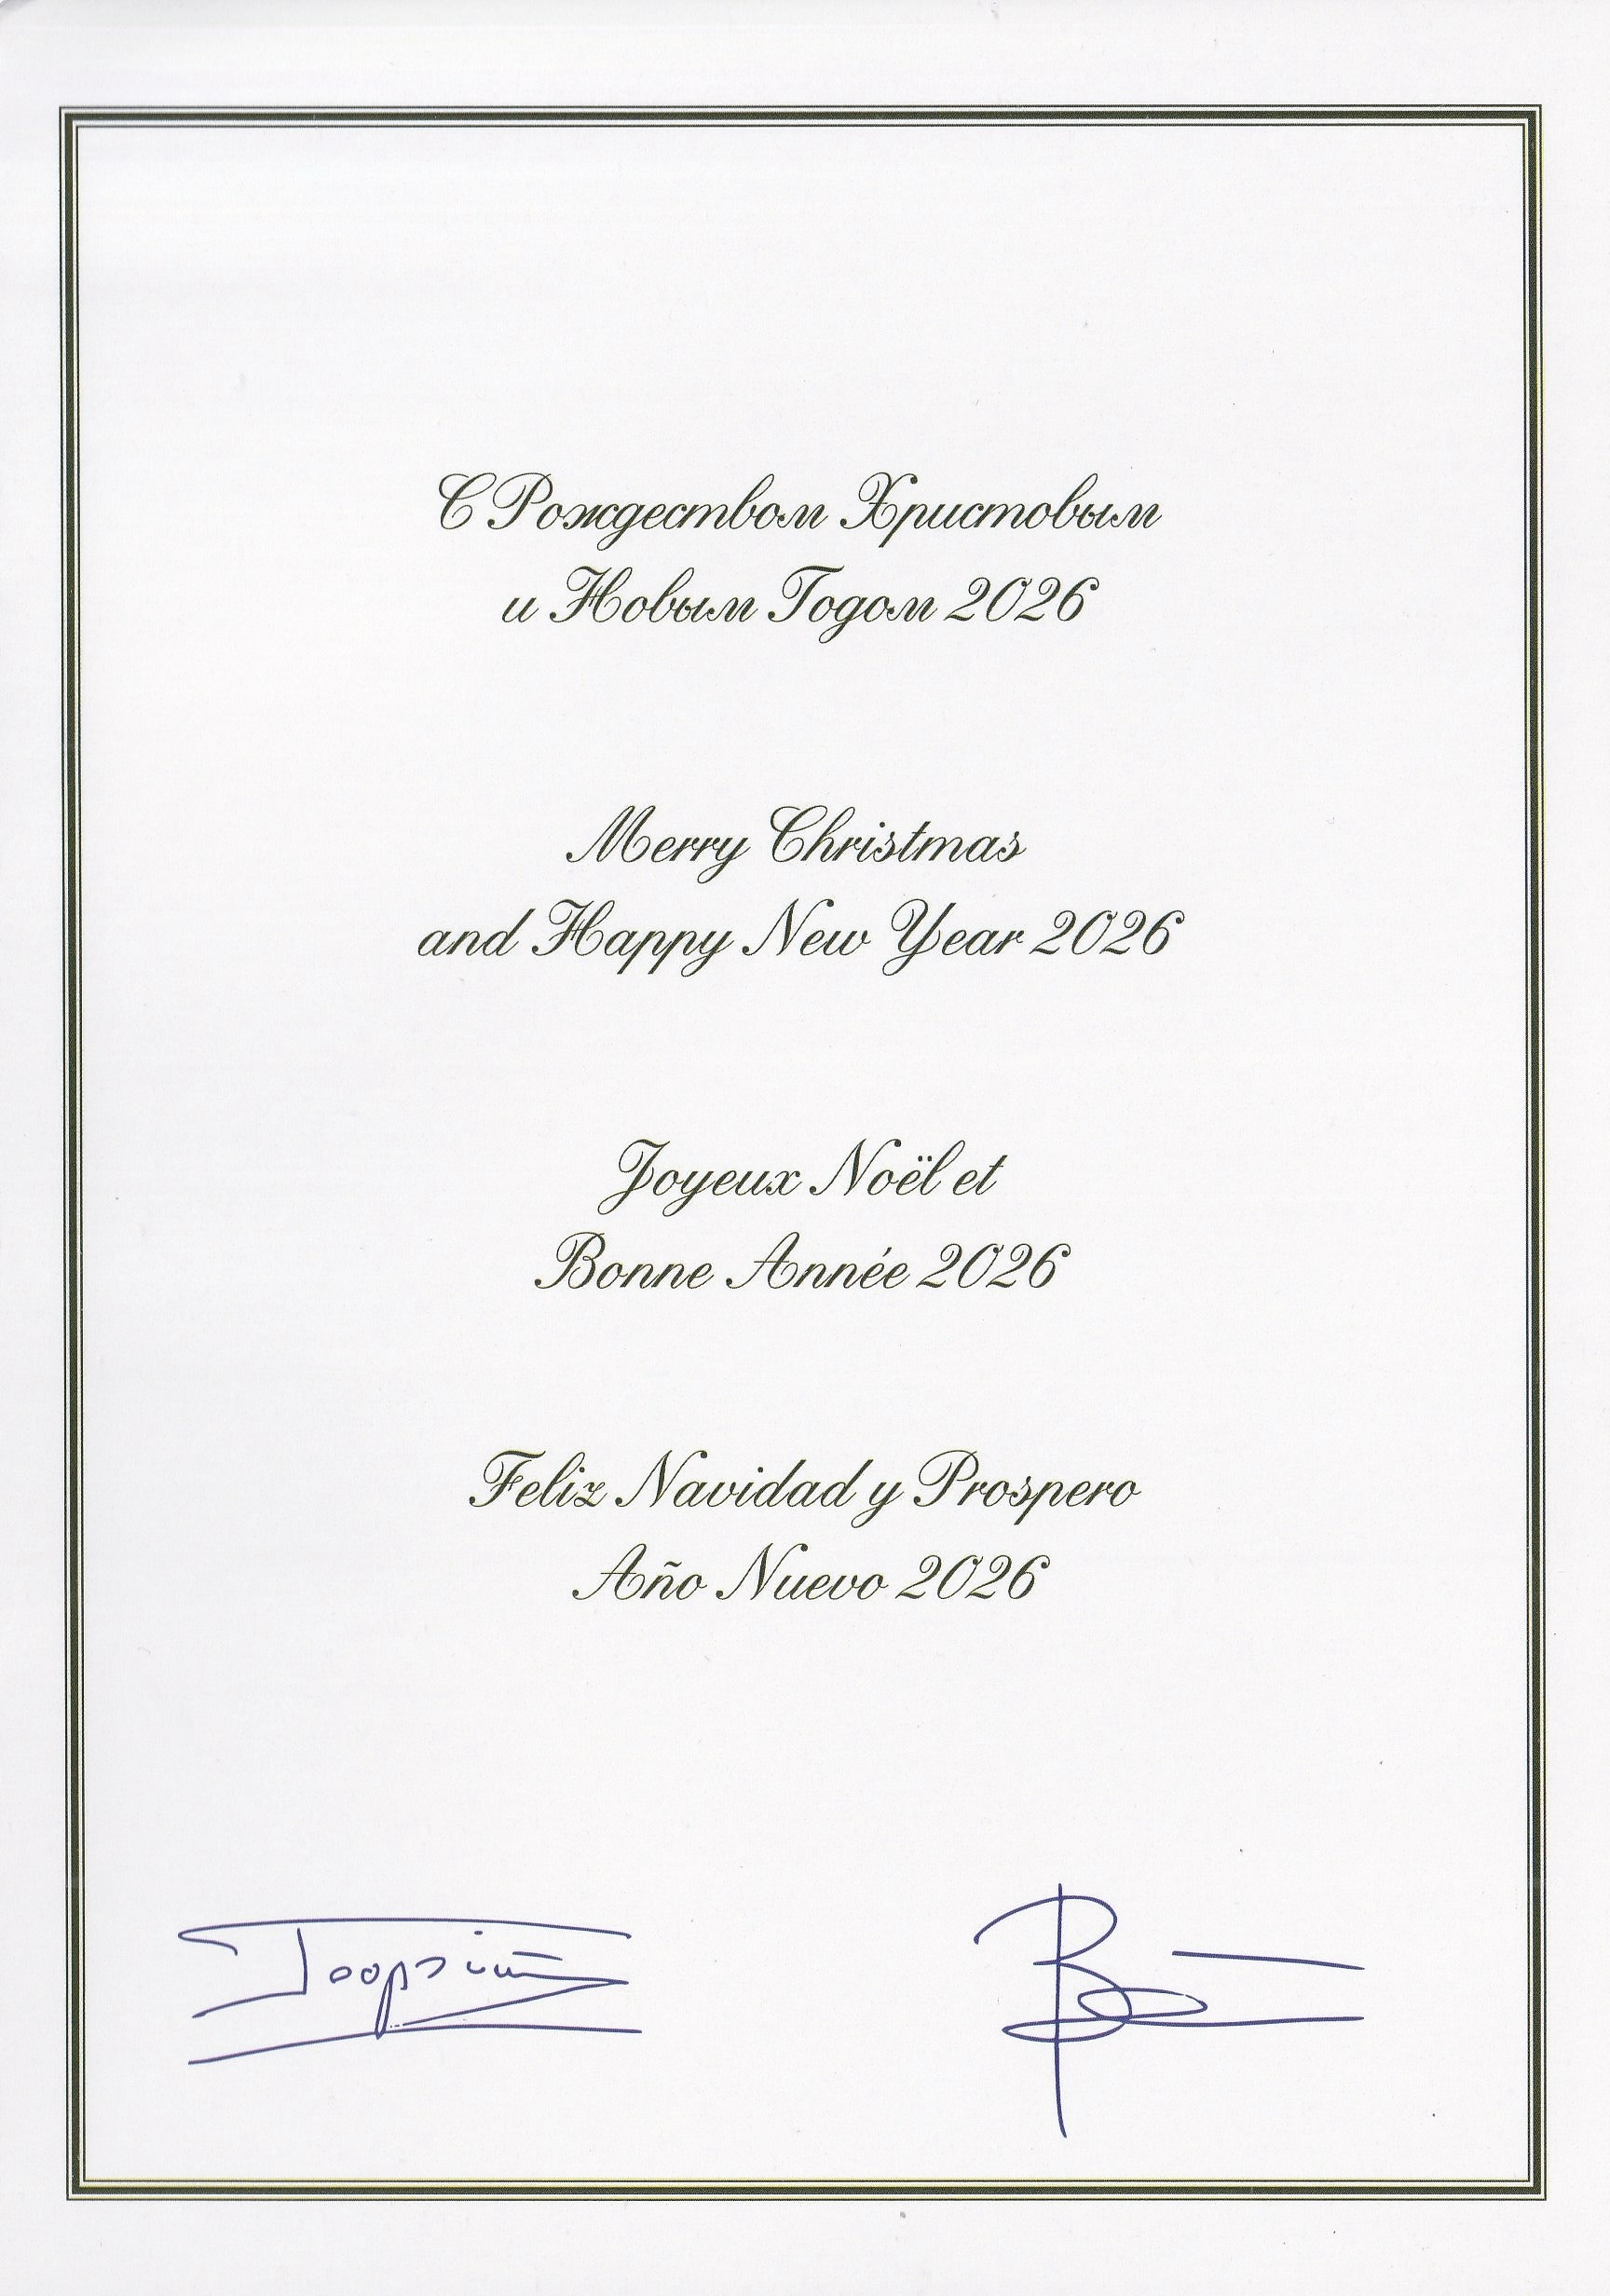 С Рождеством Христовым
и Новым Годом 2026
Merry Christmas
and Happy New Year 2026
Joyeux Noël et
Bonne Année 2026
Feliz Navidad y Prospero
Año Nuevo 2026